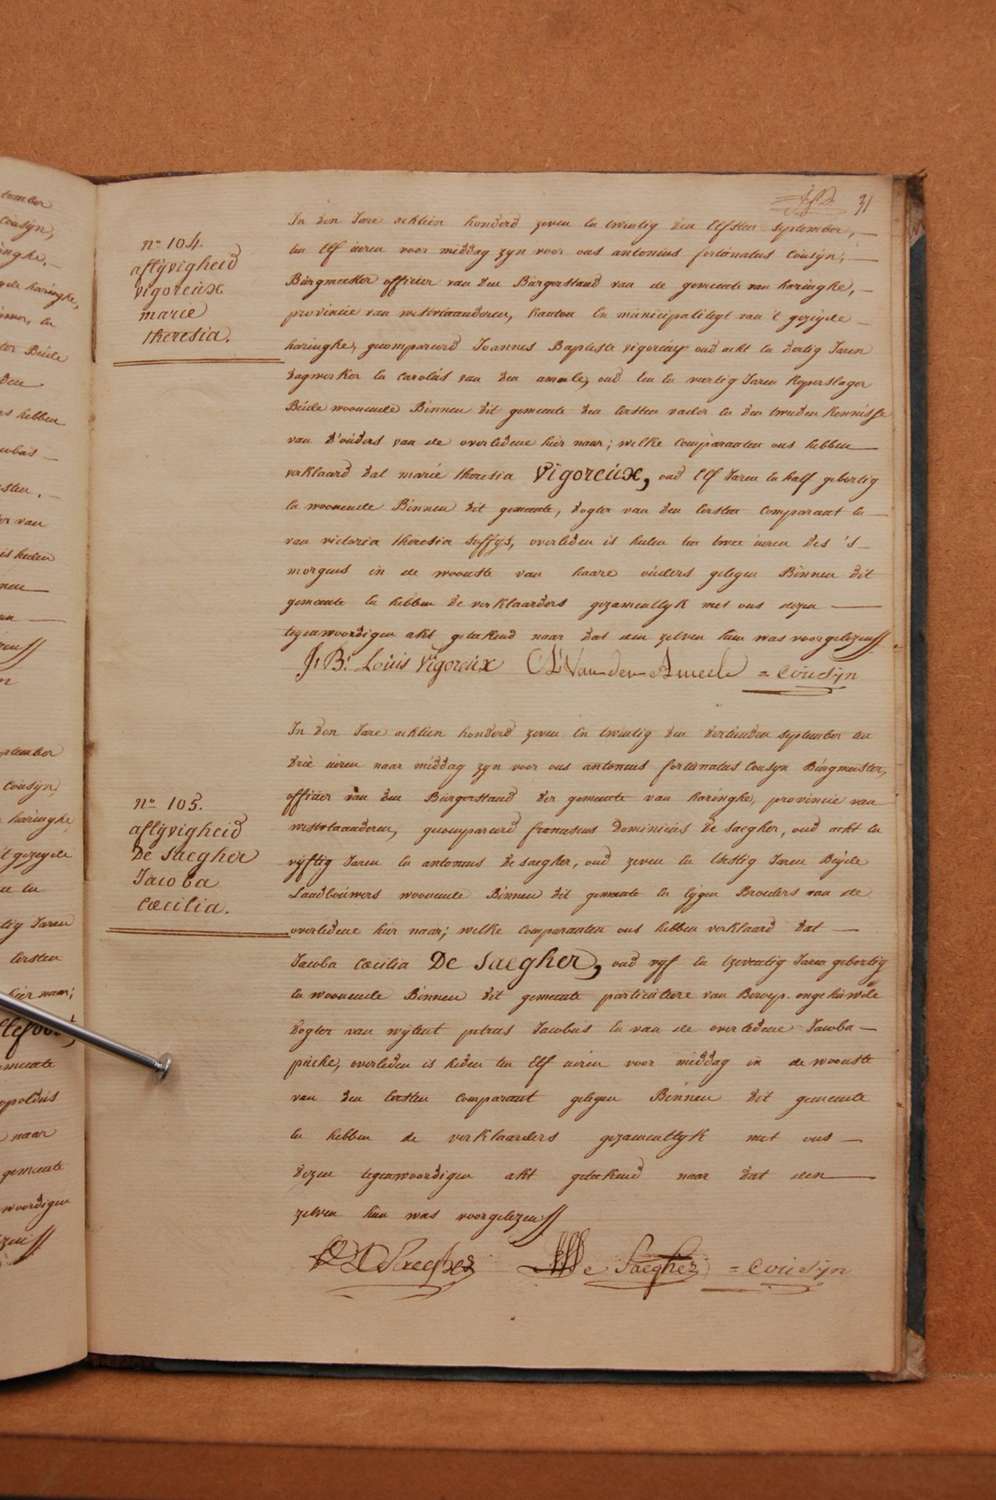 31
n° 104.
aflijvigheid
vigoreux
marie
theresia.
In den Jare achtien honderd zeven en twintig den Elfsten september,
ten Elf uren voor middag zyn voor ons antonius fortunatus Cousijn,
Burgmeester officier van den Burgerstand van de gemeente van haringhe,
provincie van westvlaanderen, kanton en municipaliteyt van 't gezeijde
haringhe, gecompareerd Joannes Baptiste vigoreux oud acht en dertig Jaren
dagwerker en Carolus van den ameele, oud een en veertig Jaren koperslager
Beide woonende Binnen dit gemeente den Eersten vader en den tweeden kennisse
van d'ouders van de overledene hier naar; welke Comparanten ons hebben
verklaard dat marie theresia Vigoreux, oud Elf Jaren en half gebortig
en woonende Binnen dit gemeente, dogter van den Eersten Comparant en
van victoria theresia soffijs, overleden is heden ten twee uren des 's
morgens in de woonste van haare ouders gelegen Binnen dit
gemeente en hebben de verklaarders gezamentlijk met ons dezen
tegenwoordigen akt geteekend naar dat een zelven hun was voorgelezen
J. B. Louis Vigoreux C L Van den Ameele = Cousijn
n° 105.
aflijvigheid
De Saegher
Jacoba
Cæcilia.
In den Jare achtien honderd zeven en twintig den dertienden september ten
drie uren naar middag zyn voor ons antonius fortunatus Cousyn Burgmeester,
officier van den Burgerstand der gemeente van haringhe, provincie van
westvlaanderen, gecompareerd franciscus Dominicus De Saegher, oud acht en
vyftig Jaren en antonius De saegher, oud zeven en tsestig Jaren Beijde
Landbouwers woonende Binnen dit gemeente en eijgen Broeders van de
overledene hier naar; welke Comparanten ons hebben verklaard dat
Jacoba Cæcilia De Saegher, oud vyf en tzeventig Jaren gebortig
en woonende Binnen dit gemeente particuliere van Beroep. ongehuwde
dogter van wylent petrus Jacobus en van de overledene Jacoba
, overleden is heden ten Elf uren voor middag in de woonste
van den Eersten Comparant gelegen Binnen dit gemeente
en hebben de verklaarders gezamentlyk met ons
dezen tegenwoordigen akt geteekend naar dat een
zelven hun was voorgelezen
De Saegher De Saegher = Cousijn